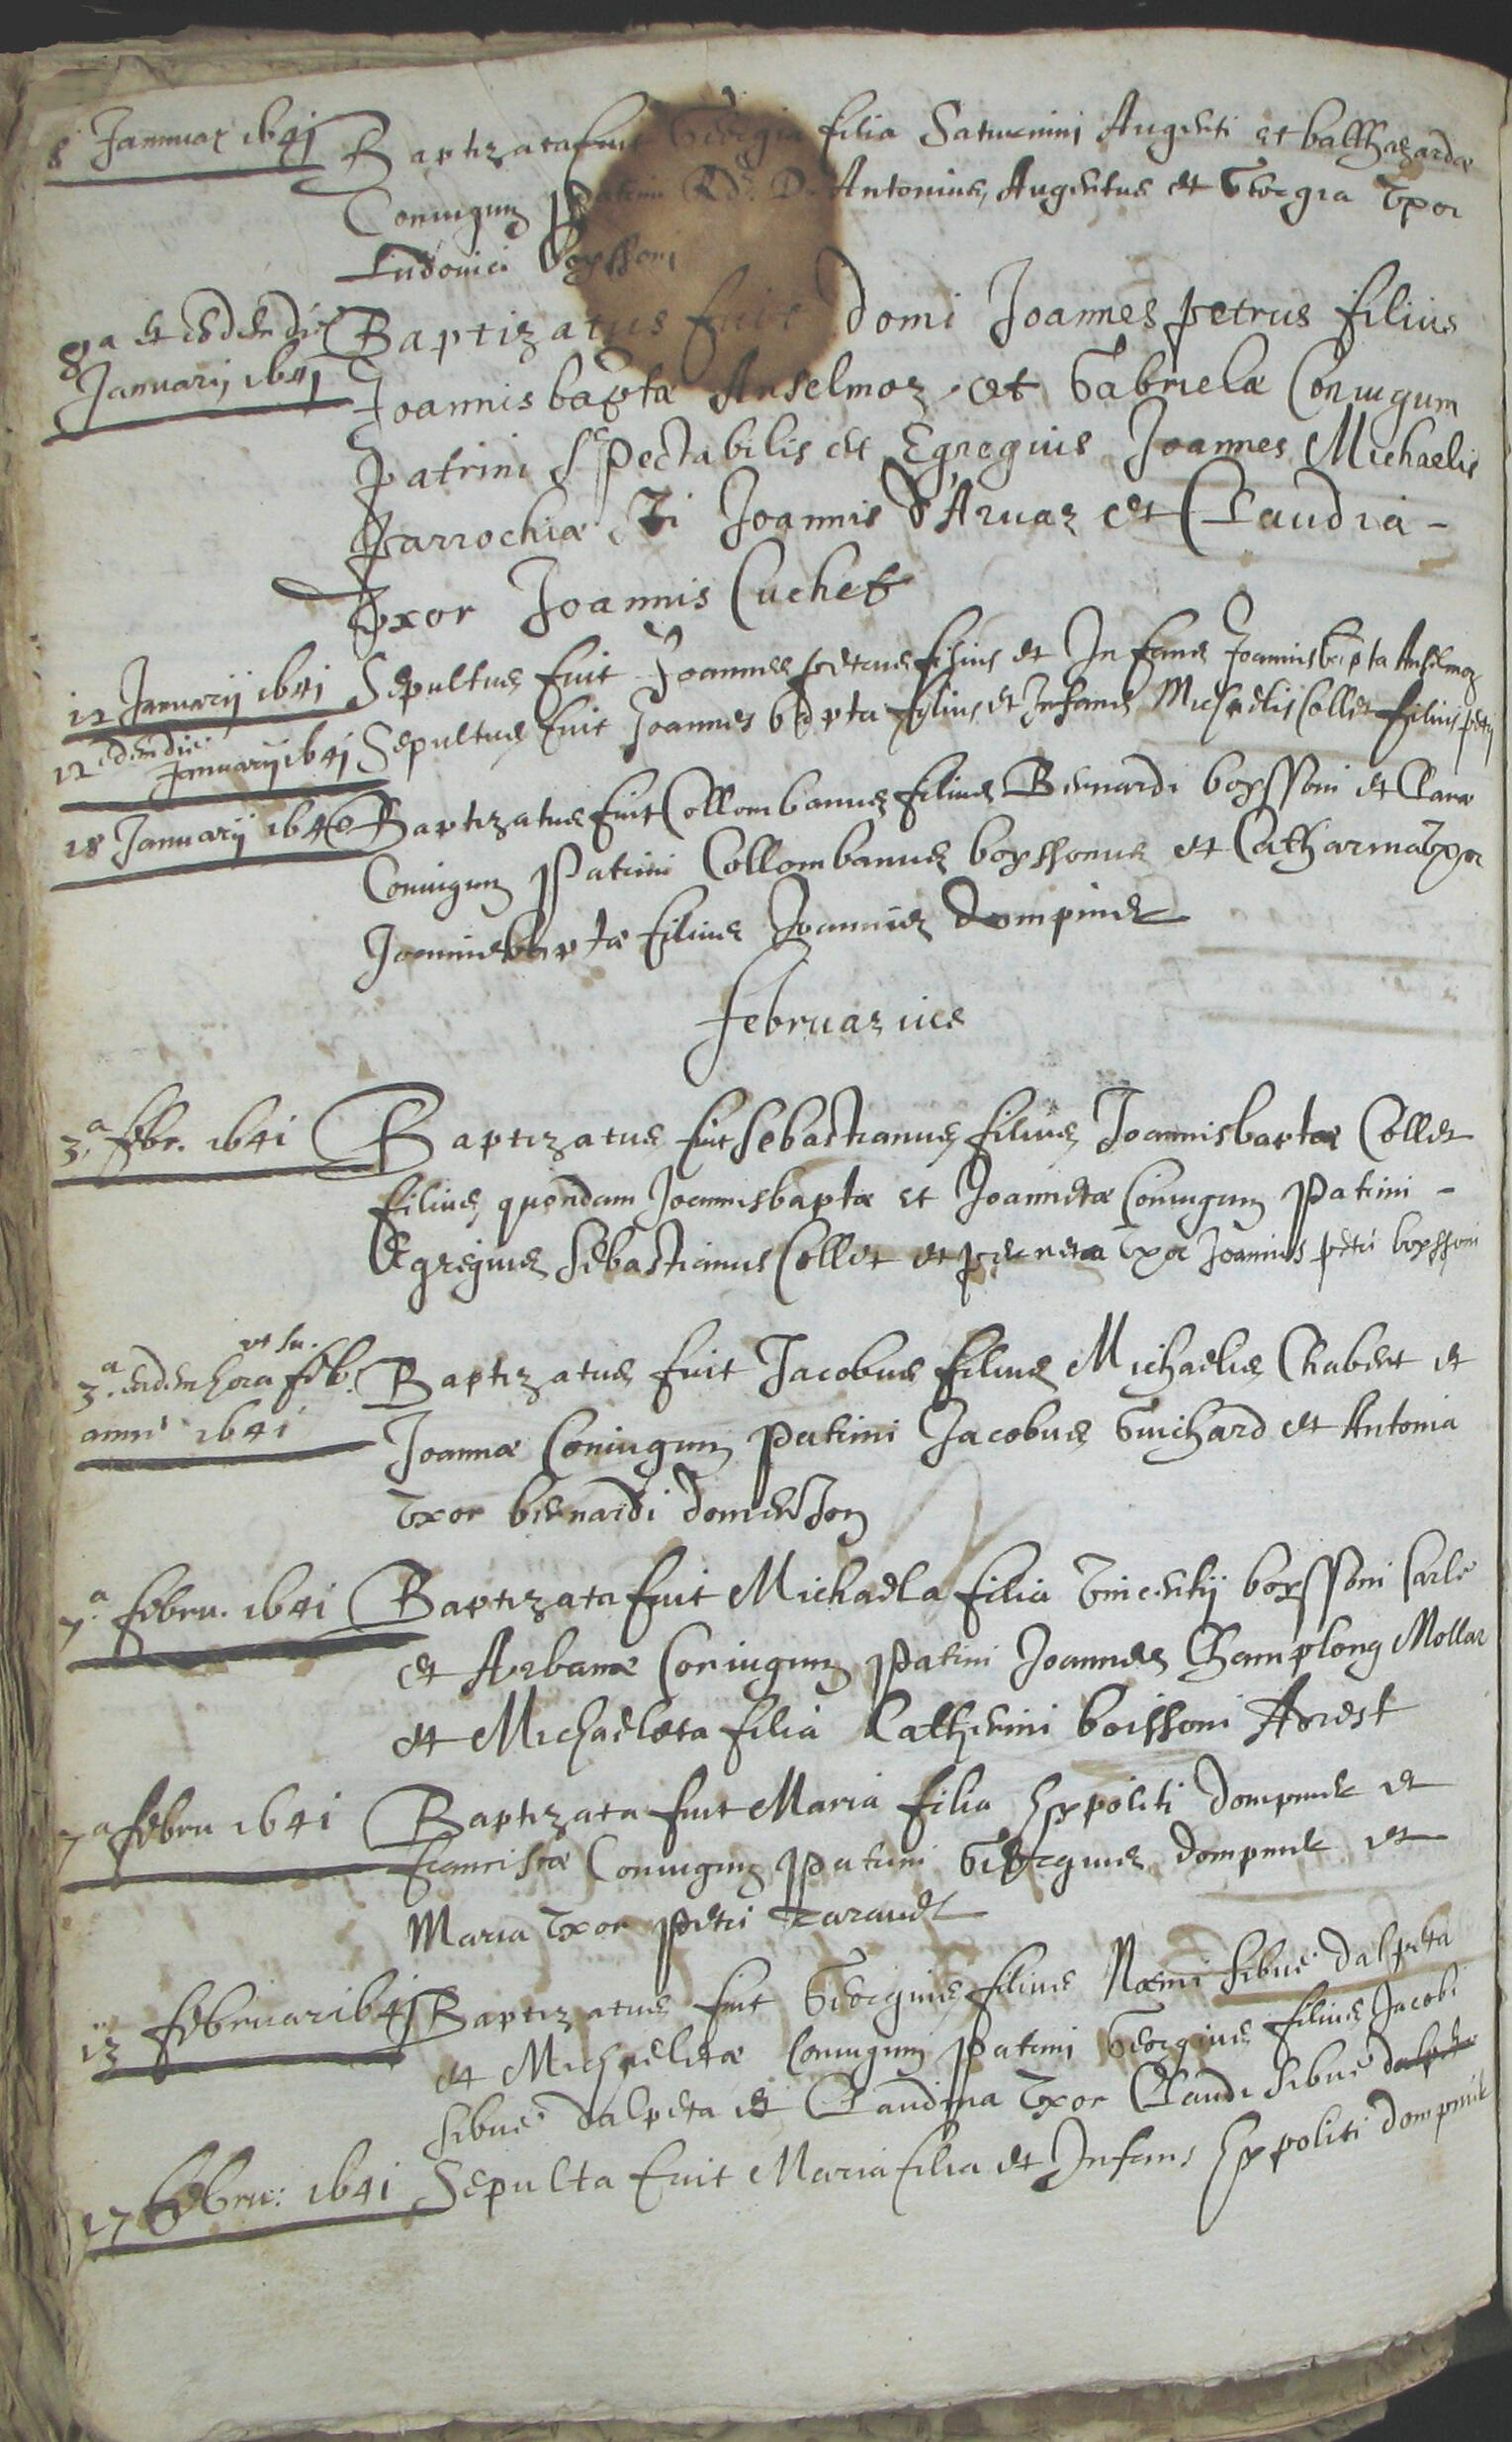 8 Januar 1641 Baptizata fuit Georgia filia Saturnini Augerti et balthazardæ
Coniugum Patrini Rdus D. Antonius Augertus et Georgia Vxor
Ludouici boyssoni
8a et eodem die Baptizatus fuit domi Joannes petrus filius
Januarij 1641 Joannisbaptæ Anselmoz et Gabrielæ Coniugum
patrini Spectabilis et Egregius Joannes Michaelis
Parrochiæ Sti Joannis d'Aruaz et Claudia -
Vxor Joannis Cuchet
12 Januarij 1641 Sepultus fuit Joannes petrus filius et Infans Joannisbapta Anselmoz
12 eodem die Januarij 1641 Sepultus fuit Joannes bapta filius et Infans Michaelis Collet filius petri
18 Januarij 1640 Baptizatus fuit Collombanus filius Bernardi boyssoni et Claræ
Coniugum Patrini Collombanus boyssonus et Catharina Vxor
Joannisbaptæ filius Joannis dompnier
februarius
3.a febr. 1641 Baptizatus fuit Sebastianus filius Joannisbaptæ Collet
filius quondam Joannisbaptæ et Joannetæ Coniugum Patrini -
Egregius Sebastianus Collet et perneta Vxor Joannis petri boyssoni
3.a eadem hora feb. vt su. Baptizatus fuit Jacobus filius Michaelis Chabert et
anni 1641 Joannæ Coniugum Patrini Jacobus Guichard et Antonia
Vxor bernardi domenjon
7.a febru. 1641 Baptizata fuit Michaela filia Vincentij boyssoni Carle
et Arbanæ Coniugum Patrini Joannes Champlong Mollar
et Michaeleta filia Catherini boissoni
7a febru 1641 Baptizata fuit Maria filia Hyppoliti dompnier et
franciscæ Coniugum Patrini Georgius dompnier et
Maria Vxor Petri
13 februar 1641 Baptizatus fuit Georgius filius Sibue dalpeta
et Michaeletæ Coniugum Patrini Georgius filius Jacobi
Sibue dalpeta et Claudina Vxor Claudi Sibue dalpeta
17 febru: 1641 Sepulta fuit Maria filia et Infans Hyppoliti dompnier